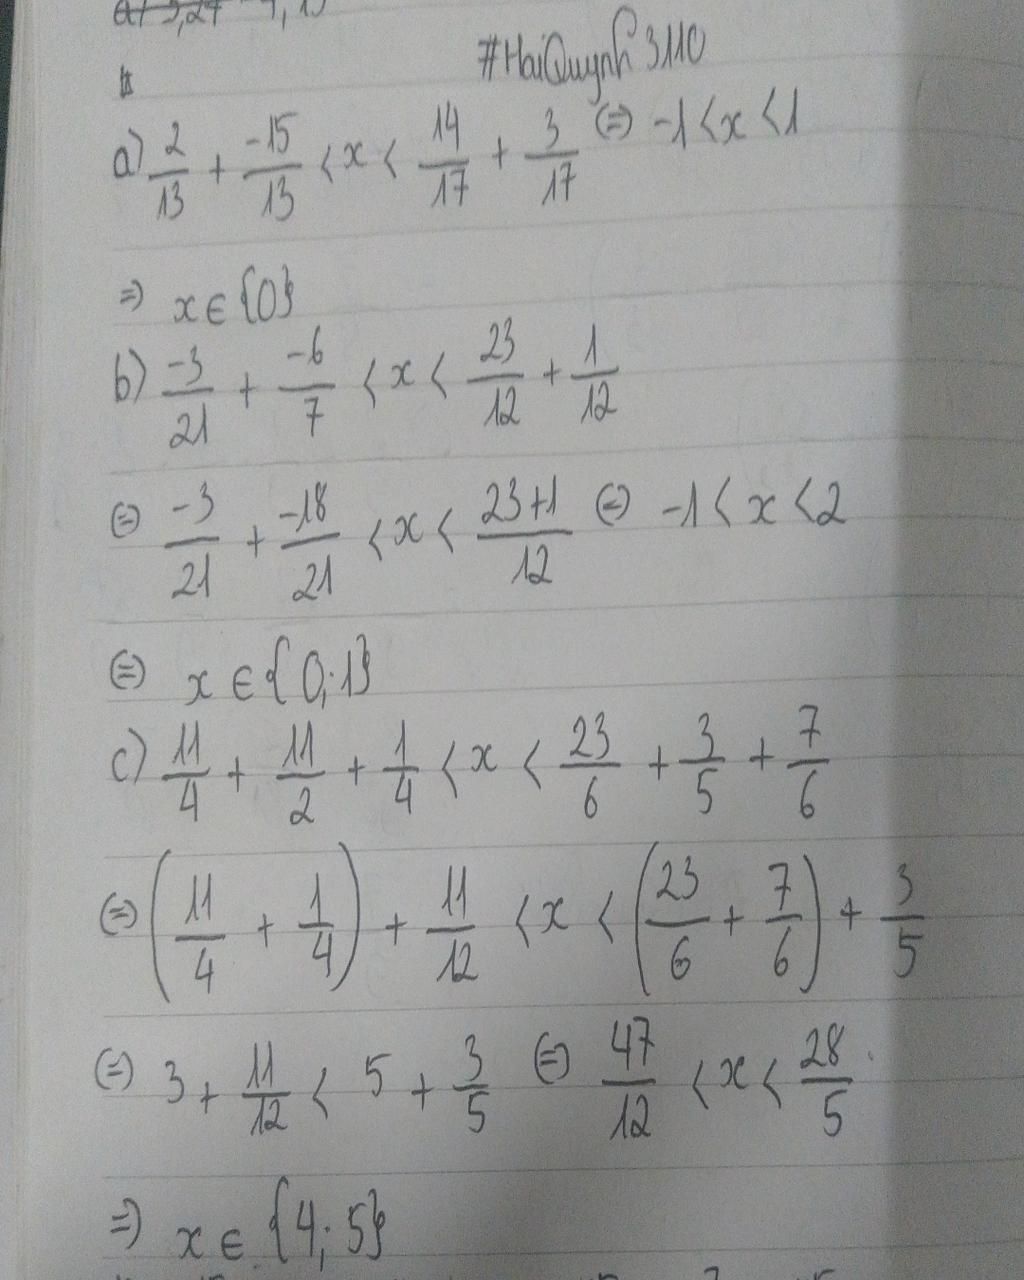 #HaiQuynh3110
a) 2/13 + -15/13 < x < 14/17 + 3/17 (=) -1 < x < 1
=) x ∈ {0}
b) -3/21 + -6/7 < x < 23/12 + 1/12
(=) -3/21 + -18/21 < x < 23+1/12 (=) -1 < x < 2
(=) x ∈ {0; 1}
c) 11/4 + 11/2 + 1/4 < x < 23/6 + 3/5 + 7/6
(=) (11/4 + 1/4) + 11/12 < x < (23/6 + 7/6) + 3/5
(=) 3 + 11/12 < 5 + 3/5 (=) 47/12 < x < 28/5
=) x ∈ {4; 5}